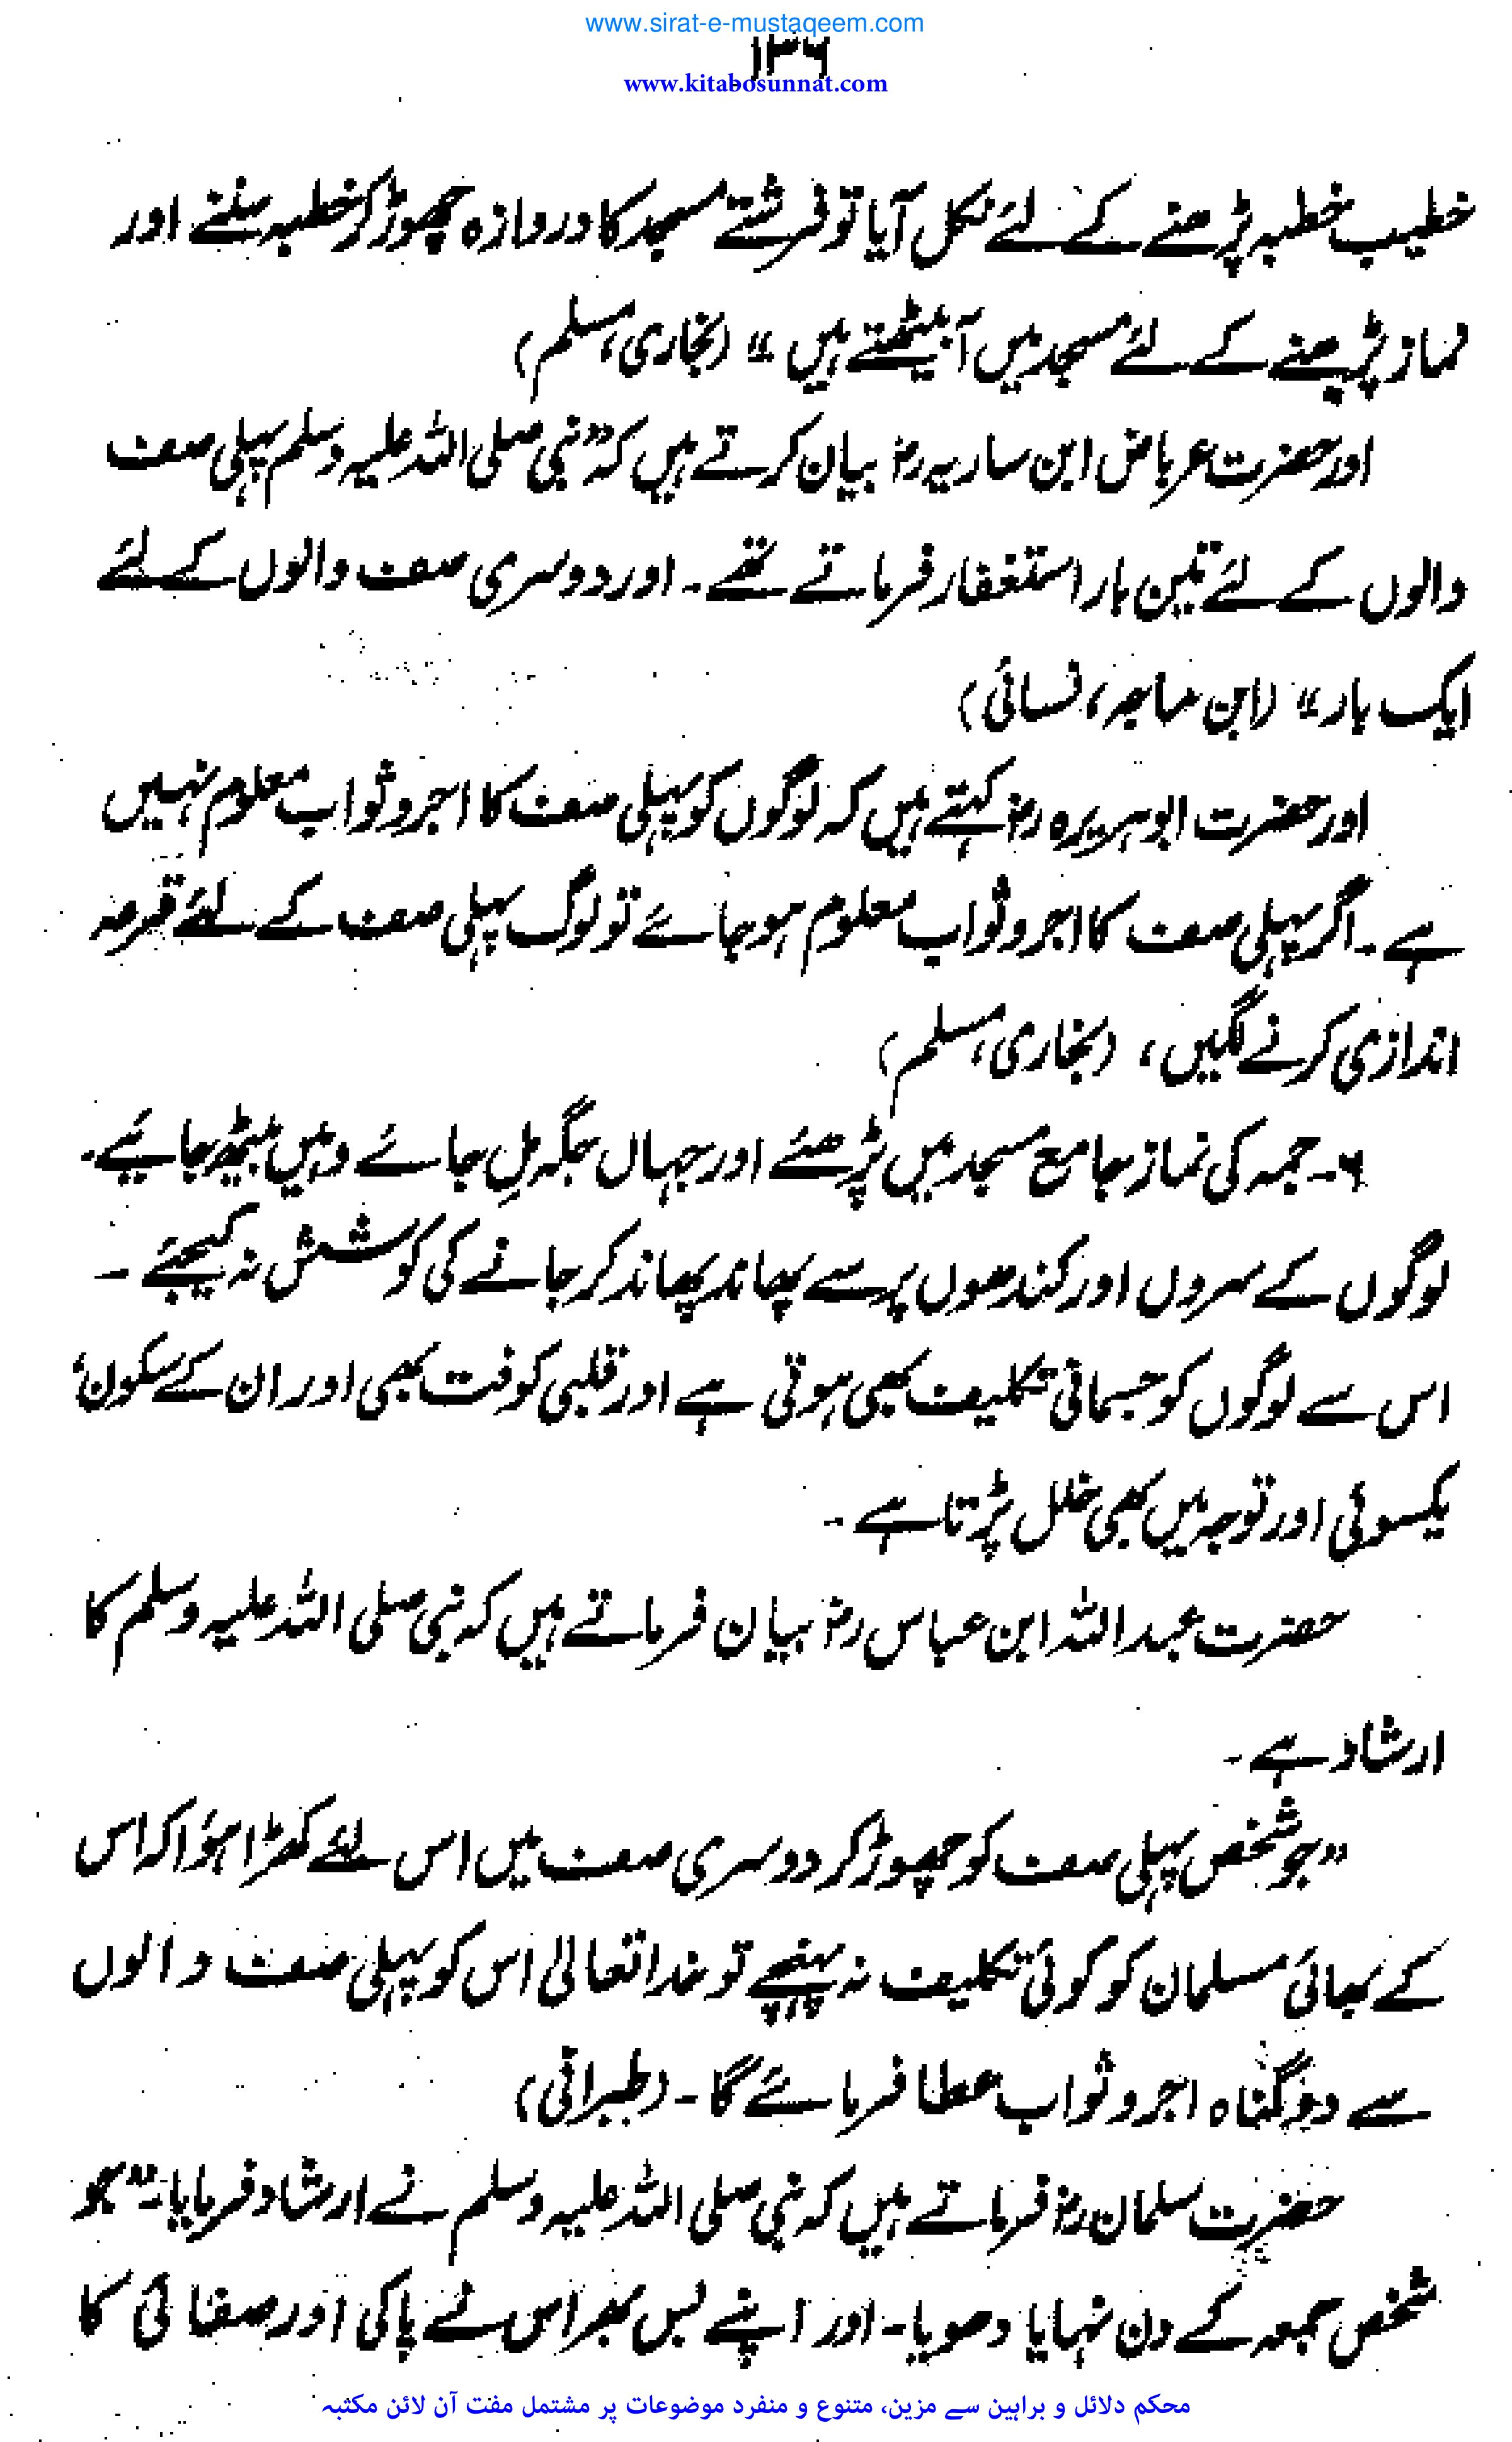 www.sirat-e-mustaqeem.com
۱۳۶
www.kitabosunnat.com
خطیب خطبہ پڑھنے کے لئے نکل آیا تو فرشتے مسجد کا دروازہ چھوڑ کر خطبہ سننے اور
نماز پڑھنے کے لئے مسجد میں آ بیٹھتے ہیں“ (بخاری، مسلم)
اور حضرت عرباض ابن ساریہ رضؓ بیان کرتے ہیں کہ ”نبی صلی اللہ علیہ وسلم پہلی صف
والوں کے لئے تین بار استغفار فرماتے تھے۔ اور دوسری صف والوں کے لئے
ایک بار“ (ابن ماجہ، نسائی)
اور حضرت ابو ہریرہ رضؓ کہتے ہیں کہ لوگوں کو پہلی صف کا اجر و ثواب معلوم نہیں
ہے۔ اگر پہلی صف کا اجر و ثواب معلوم ہو جائے تو لوگ پہلی صف کے لئے قرعہ
اندازی کرنے لگیں، (بخاری، مسلم)
۶۔ جمعہ کی نماز جامع مسجد میں پڑھئے اور جہاں جگہ مِل جائے وہیں بیٹھ جائیے۔
لوگوں کے سروں اور کندھوں پر سے پھاند پھاند کر جانے کی کوشش نہ کیجئے۔
اس سے لوگوں کو جسمانی تکلیف بھی ہوتی ہے اور قلبی کوفت بھی اور ان کے سکون،
یکسوئی اور توجہ میں بھی خلل پڑتا ہے۔
حضرت عبداللہ ابن عباس رضؓ بیان فرماتے ہیں کہ نبی صلی اللہ علیہ وسلم کا
ارشاد ہے۔
”جو شخص پہلی صف کو چھوڑ کر دوسری صف میں اس لئے کھڑا ہؤا کہ اس
کے بھائی مسلمان کو کوئی تکلیف نہ پہنچے تو خدا تعالیٰ اس کو پہلی صف والوں
سے دوگناہ اجر و ثواب عطا فرمائے گا۔ (طبرانی)
حضرت سلمان رضؓ فرماتے ہیں کہ نبی صلی اللہ علیہ وسلم نے ارشاد فرمایا۔ ”جو
شخص جمعہ کے دن نہایا دھویا۔ اور اپنے بس بھر اس نے پاکی اور صفائی کا
محکم دلائل و براہین سے مزین، متنوع و منفرد موضوعات پر مشتمل مفت آن لائن مکتبہ